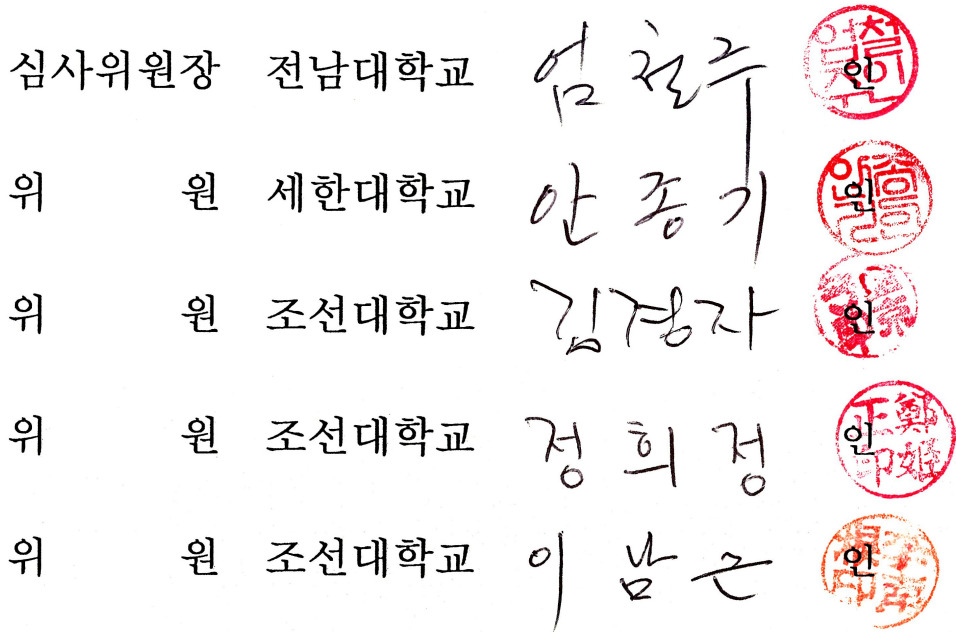 심사위원장 전남대학교 엄철주 인
위 원 세한대학교 안종기 인
위 원 조선대학교 김경자 인
위 원 조선대학교 정희정 인 鄭姬正印
위 원 조선대학교 이남근 인